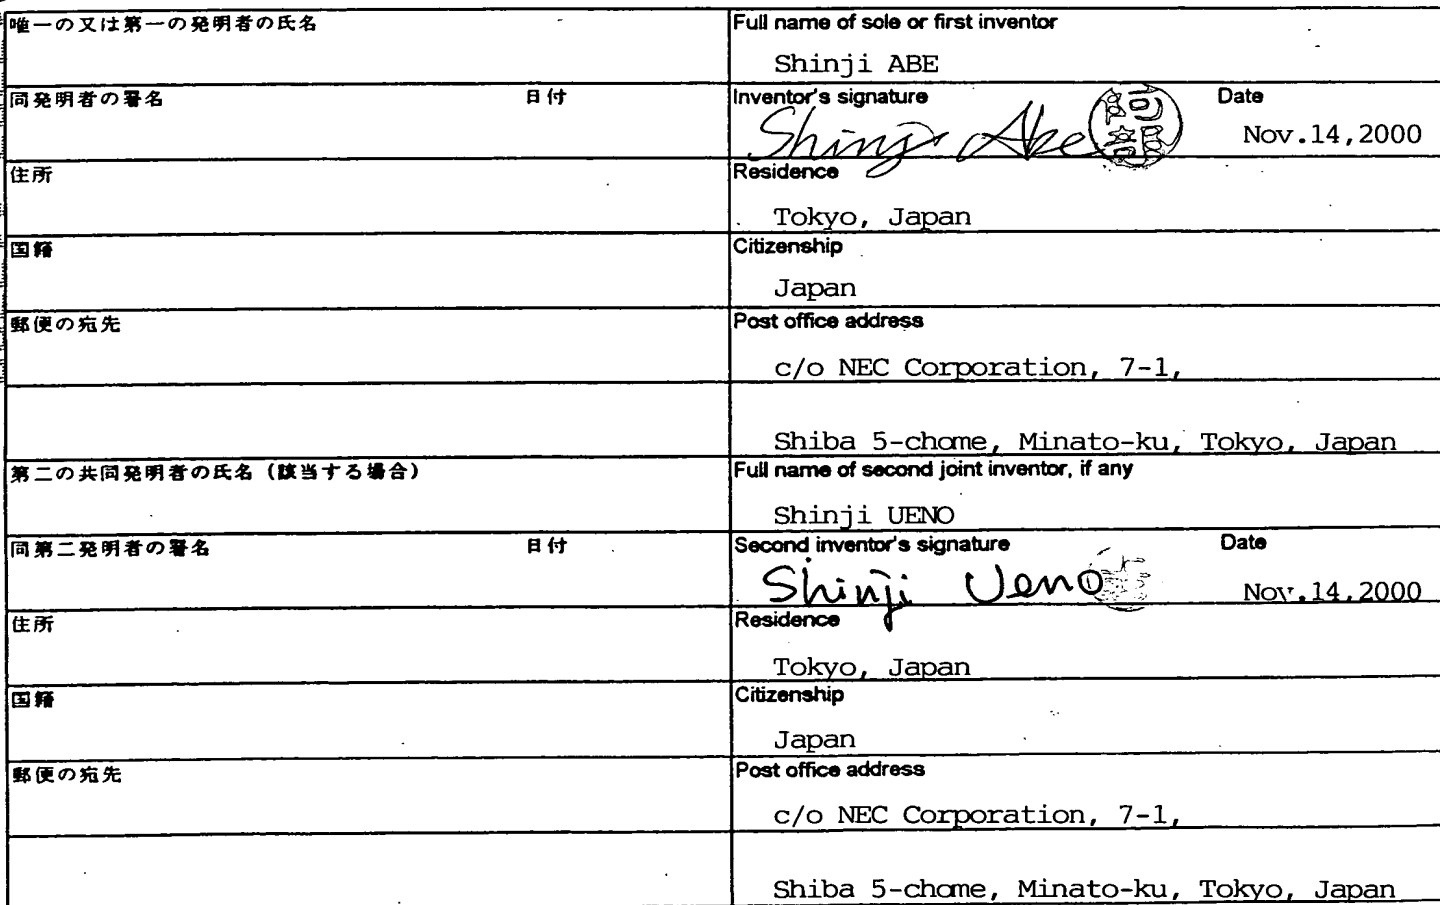 唯一の又は第一の発明者の氏名 Full name of sole or first inventor
Shinji ABE
同発明者の署名 日付 Inventor's signature Date
Shinji Abe Nov.14,2000
住所 Residence
Tokyo, Japan
国籍 Citizenship
Japan
郵便の宛先 Post office address
c/o NEC Corporation, 7-1,
Shiba 5-chome, Minato-ku, Tokyo, Japan
第二の共同発明者の氏名（該当する場合） Full name of second joint inventor, if any
Shinji UENO
同第二発明者の署名 日付 Second inventor's signature Date
Shinji Ueno Nov.14,2000
住所 Residence
Tokyo, Japan
国籍 Citizenship
Japan
郵便の宛先 Post office address
c/o NEC Corporation, 7-1,
Shiba 5-chome, Minato-ku, Tokyo, Japan